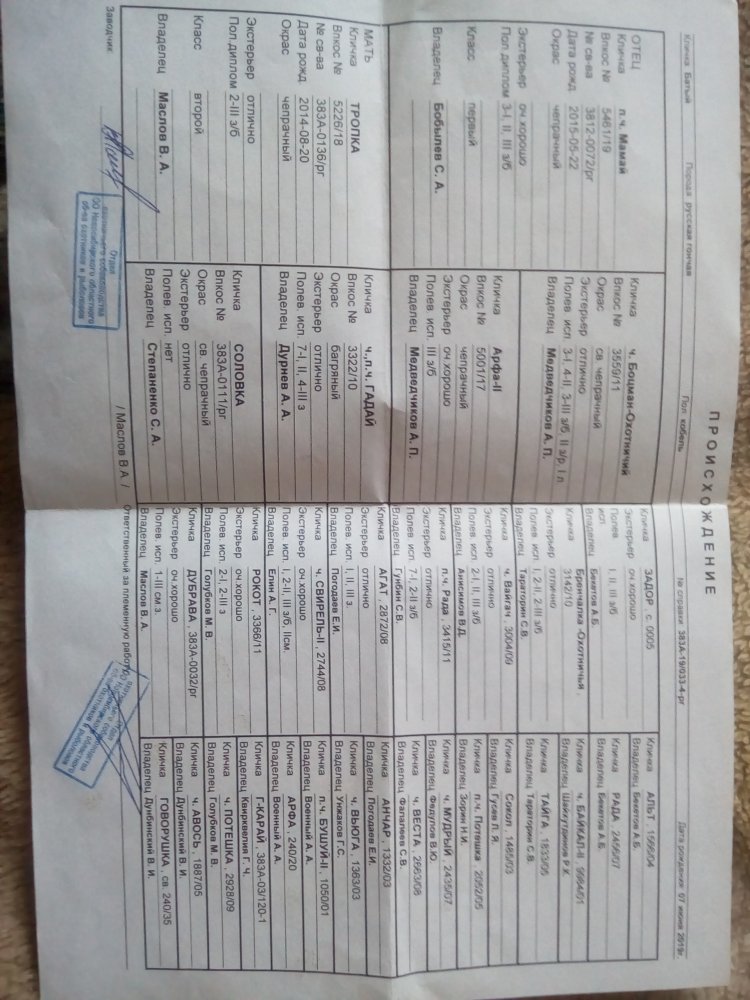 ПРОИСХОЖДЕНИЕ
Кличка Батый Порода русская гончая Пол кобель № справки 383А-19/033-4-рг Дата рождения 07 июня 2019г.
ОТЕЦ
Кличка п.ч. Мамай
Впкос № 5461/19
№ св-ва 3812-0072/рг
Дата рожд 2015-05-22
Окрас чепрачный
Экстерьер оч хорошо
Пол диплом 3-I, II, III з/б
Класс первый
Владелец Бобылев С. А.
МАТЬ
Кличка ТРОПКА
Впкос № 5226/18
№ св-ва 383А-0136/рг
Дата рожд 2014-08-20
Окрас чепрачный
Экстерьер отлично
Пол.диплом 2-III з/б
Класс второй
Владелец Маслов В. А.
Кличка ч. Боцман-Охотничий
Впкос № 3559/11
Окрас св. чепрачный
Экстерьер отлично
Полев исп 3-I, 4-II, 3-III з/б, II з/р, I л
Владелец Медведчиков А. П.
Кличка Арфа-II
Впкос № 5001/17
Окрас чепрачный
Экстерьер оч хорошо
Полев. исп. III з/б
Владелец Медведчиков А. П.
Кличка ч.,п.ч. ГАДАЙ
Впкос № 3322/10
Окрас багряный
Экстерьер отлично
Полев. исп. 7-I, II, 4-III з
Владелец Дурнев А. А.
Кличка СОЛОВКА
Впкос № 383А-0111/рг
Окрас св. чепрачный
Экстерьер отлично
Полев исп нет
Владелец Степаненко С. А.
Кличка ЗАДОР, с. 0005
Экстерьер оч хорошо
Полев I, II, III з/б
исп
Владелец Бекетов А.Б.
Кличка Бренчалка -Охотничья,
3142/10
Экстерьер отлично
Полев. исп I, 2-II, 2-III з/б
Владелец Тараторин С.В.
Кличка ч. Вайгач, 3004/09
Экстерьер отлично
Полев. исп. 2-I, II, 2-III з/б
Владелец Анисимов В.Д.
Кличка п.ч. Рада, 3415/11
Экстерьер отлично
Полев. исп 7-I, 2-II з/б
Владелец Гунбин С.В.
Кличка АГАТ, 2872/08
Экстерьер отлично
Полев. исп. I, II, III з.
Владелец Погодаев Е.И.
Кличка ч. СВИРЕЛЬ-II, 2744/08
Экстерьер оч.хорошо
Полев. исп. I, 2-II, III з/б, IIсм.
Владелец Елин А. Г.
Кличка РОКОТ, 3366/11
Экстерьер оч.хорошо
Полев. исп. 2-I, 2-III з
Владелец Голубков М. В.
Кличка ДУБРАВА, 383А-0032/рг
Экстерьер оч хорошо
Полев. исп. 1-III см.з.
Владелец Маслов В. А.
Кличка АЛЬТ, 1566/04
Владелец Бекетов А.Б.
Кличка РАДА, 2456/07
Владелец Бекетов А.Б.
Кличка ч. БАЙКАЛ-II,
Владелец Шайхутдинов Р.К.
Кличка ТАЙГА, 1833/05
Владелец Тараторин С.В.
Кличка Сокол, 1485/03
Владелец Гусев Л. Я.
Кличка п.ч. Потешка, 2052/05
Владелец Зорин Н.И.
Кличка ч. МУДРЫЙ, 2435/07
Владелец Федулов В.Ю.
Кличка ч. ВЕСТА, 2663/08
Владелец Фалалеев С.В.
Кличка АНЧАР, 1332/03
Владелец Погодаев Е.И.
Кличка ч. ВЬЮГА, 1363/03
Владелец Унжаков Г.С.
Кличка п.ч. БУШУЙ-II, 1050/01
Владелец Военный А. А.
Кличка АРФА, 240/20
Владелец Военный А. А.
Кличка Г.КАРАЙ, 383А-03/120-1
Владелец Квирквелия Г. Ч.
Кличка ч. ПОТЕШКА, 2928/09
Владелец Голубков М. В.
Кличка ч. АВОСЬ, 1887/05
Владелец Дунбинский В. И.
Кличка ГОВОРУШКА, св. 240/35
Владелец Дунбинский В. И.
Заводчик / Маслов В А. / Ответственный за племенную работу
Отдел
охотничьего собаководства
ОО Новосибирского областного
об-ва охотников и рыболовов